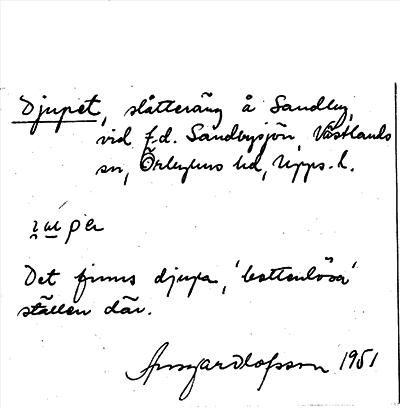 Djupet, slåtteräng å Sandby,
vid f.d. Sandbysjön, Västlands
sn, Örbyhus hd, Upps. l.
Det finns djupa, 'bottenlösa'
ställen där.
Olofsson 1951